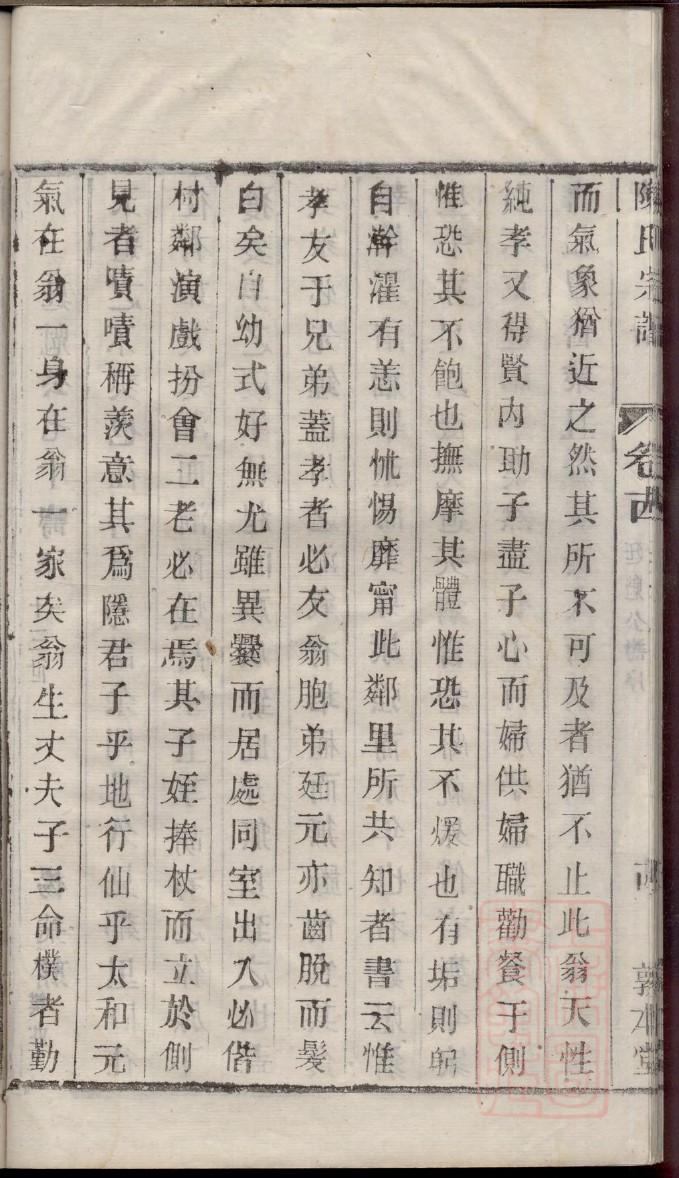 陳氏宗譜 卷 敦本堂
而氣象猶近之然其所不可及者猶不止此翁天性
純孝又得賢內助子盡子心而婦供婦職勸餐于側
惟恐其不飽也撫摩其體惟恐其不煖也有垢則躬
自澣濯有恙則怵惕靡甯此鄰里所共知者書云惟
孝友于兄弟蓋孝者必友翁胞弟廷元亦齒脫而髮
白矣自幼式好無尤雖異爨而居處同室出入必偕
村鄰演戲扮會二老必在焉其子姪捧杖而立於側
見者嘖嘖稱羨意其爲隱君子乎地行仙乎太和元
氣在翁一身在翁一家矣翁生丈夫子三命樸者勤